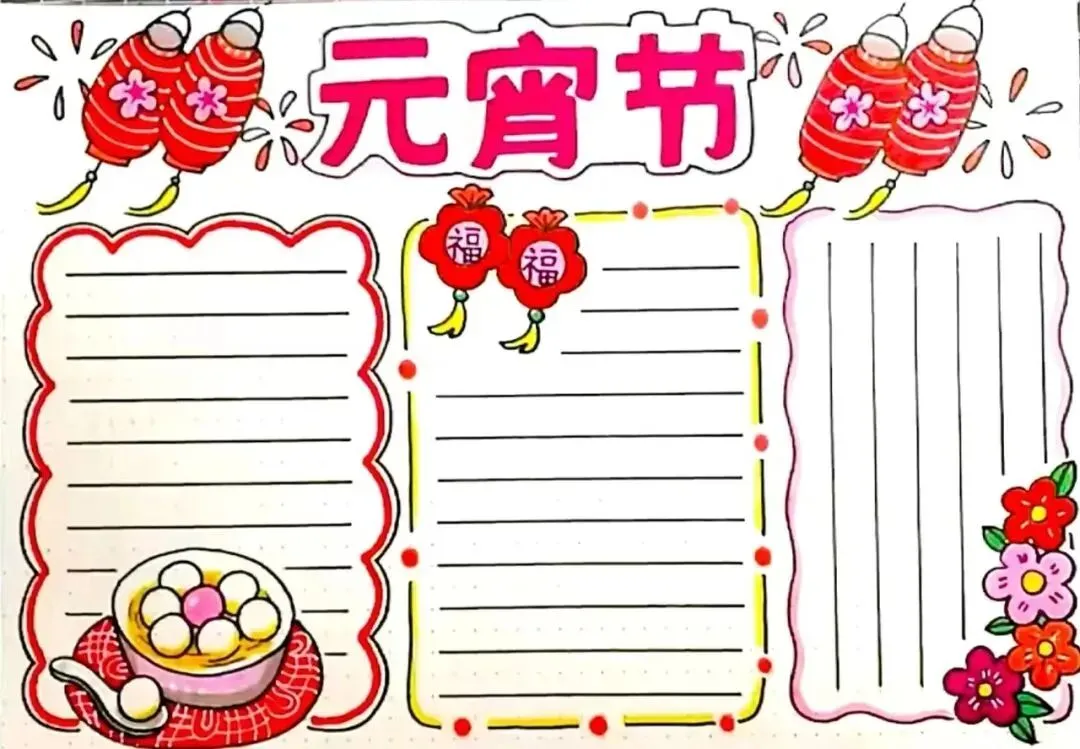 元宵节
福
福